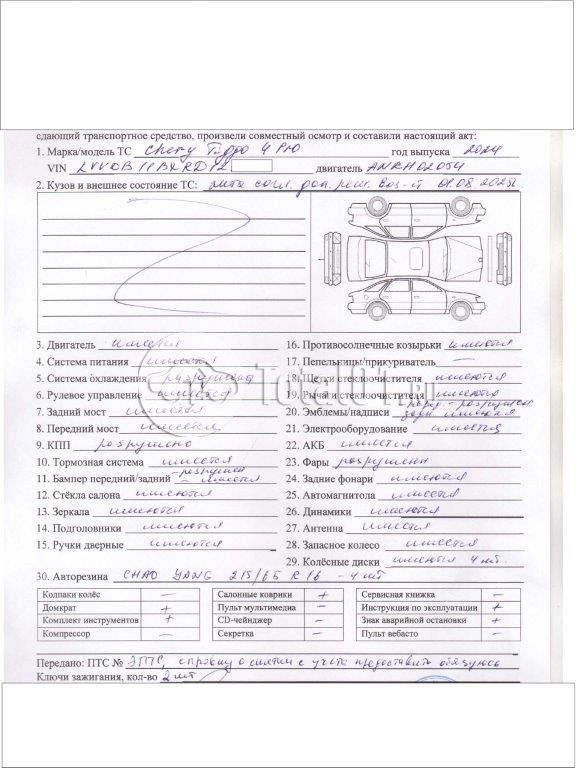 сдающий транспортное средство, произвели совместный осмотр и составили настоящий акт:
1. Марка/модель ТС Chery Тигго 4 Pro год выпуска 2024
VIN LVVDB11BXRD12 двигатель
2. Кузов и внешнее состояние ТС: согл. доп. 01.08.2025г.
3. Двигатель имеется
4. Система питания имеется
5. Система охлаждения разрушена
6. Рулевое управление имеется
7. Задний мост имеется
8. Передний мост имеется
9. КПП разрушено
10. Тормозная система имеется
11. Бампер передний/задний - разрушен - имеется
12. Стёкла салона имеются
13. Зеркала имеются
14. Подголовники имеются
15. Ручки дверные имеются
16. Противосолнечные козырьки имеются
17. Пепельницы/прикуриватель —
18. Щетки стеклоочистителя имеются
19. Рычаги стеклоочистителя имеются
20. Эмблемы/надписи имеются
21. Электрооборудование имеется
22. АКБ имеется
23. Фары разрушены
24. Задние фонари имеются
25. Автомагнитола имеется
26. Динамики имеются
27. Антенна имеется
28. Запасное колесо имеется
29. Колёсные диски имеются 4 шт.
30. Авторезина CHAO YANG 215/65 R16 - 4 шт
Колпаки колёс — Салонные коврики + Сервисная книжка —
Домкрат + Пульт мультимедиа — Инструкция по эксплуатации +
Комплект инструментов + CD-чейнджер — Знак аварийной остановки +
Компрессор — Секретка — Пульт вебасто —
Передано: ПТС № ЭПТС, справку о снятии с учета предоставить обязуюсь
Ключи зажигания, кол-во 2 шт
Total01.ru